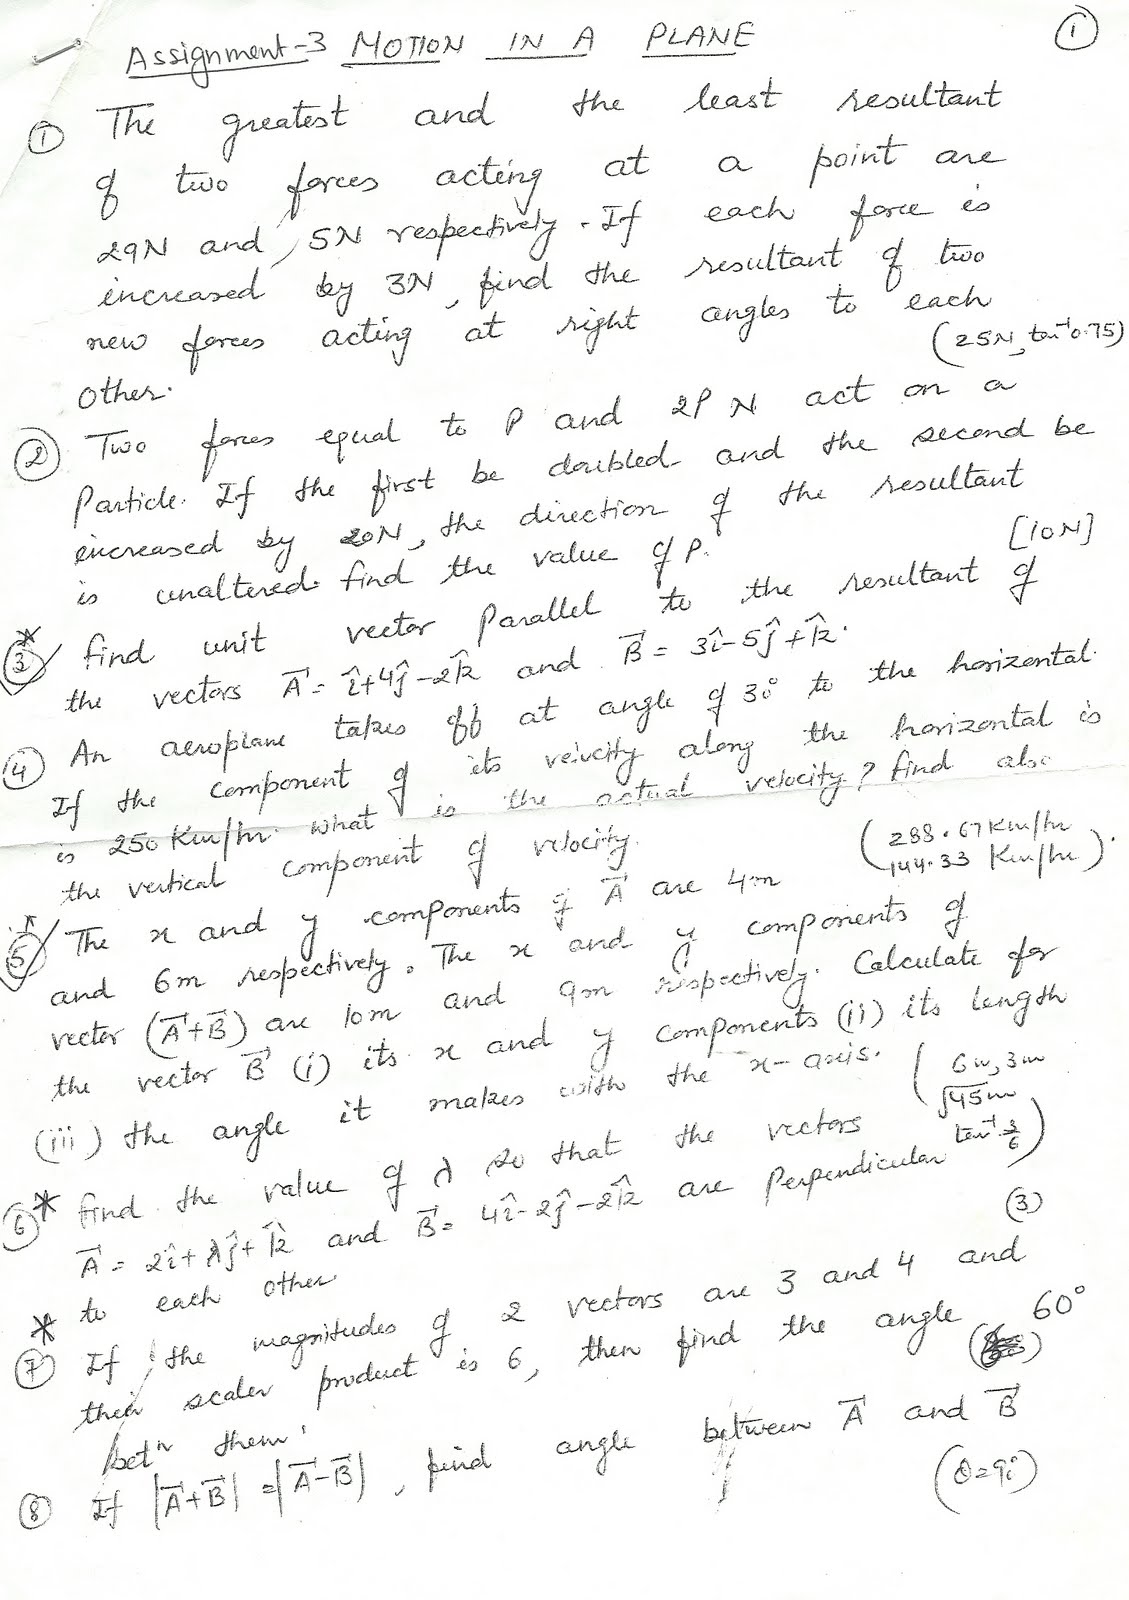 ①
Assignment-3 MOTION IN A PLANE
① The greatest and the least resultant
of two forces acting at a point are
29N and 5N respectively. If each force is
increased by 3N, find the resultant of two
new forces acting at right angles to each
other. (25N, tan⁻¹0.75)
② Two forces equal to P and 2P N act on a
Particle. If the first be doubled and the second be
increased by 20N, the direction of the resultant
is unaltered. find the value of P. [10N]
*③ find unit vector Parallel to the resultant of
the vectors A⃗ = î+4ĵ-2k̂ and B⃗ = 3î-5ĵ+k̂.
④ An aeroplane takes off at angle of 30° to the horizontal.
If the component of its velocity along the horizontal is
is 250 Km/hr. what is the actual velocity? find also
the vertical component of velocity. (288.67 Km/hr
144.33 Km/hr).
*⑤ The x and y components of A⃗ are 4m
and 6m respectively. The x and y components of
vector (A⃗+B⃗) are 10m and 9m respectively. Calculate for
the vector B⃗ (i) its x and y components (ii) its length
(iii) the angle it makes with the x-axis. (6m, 3m
√45m
tan⁻¹ 3/6)
⑥* find the value of λ so that the vectors
A⃗ = 2î+λĵ+k̂ and B⃗ = 4î-2ĵ-2k̂ are Perpendicular
to each other (3)
*⑦ If the magnitudes of 2 vectors are 3 and 4 and
their scaler product is 6, then find the angle 60°
betⁿ them.
⑧ If |A⃗+B⃗| = |A⃗-B⃗|, find angle between A⃗ and B⃗
(θ=90°)